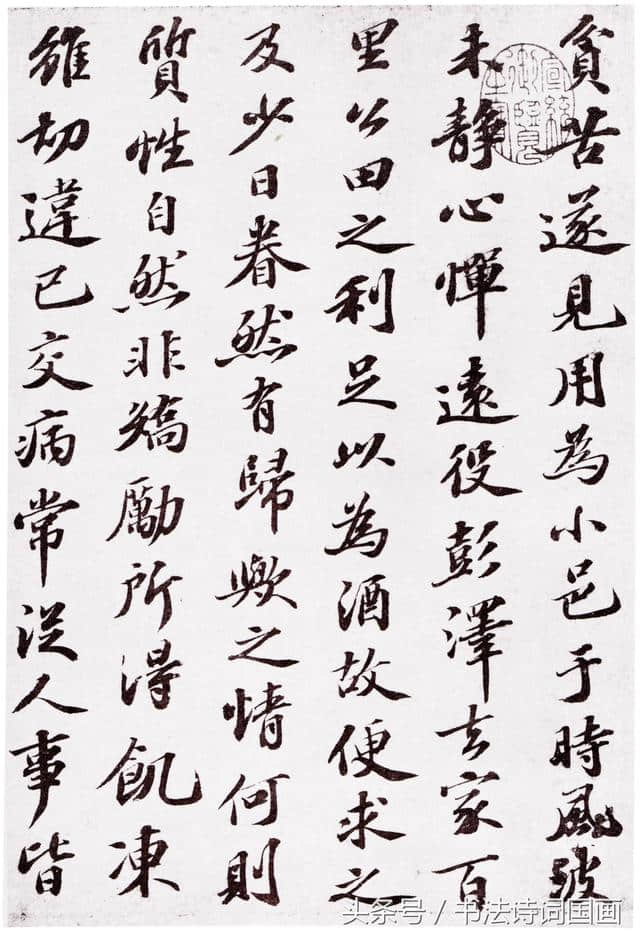 貧苦遂見用為小邑于時風波
未靜心憚遠役彭澤去家百
里公田之利足以為酒故便求之
及少日眷然有歸歟之情何則
質性自然非矯勵所得飢凍
雖切違己交病常從人事皆
宣統御覽之寶
头条号 / 书法诗词国画